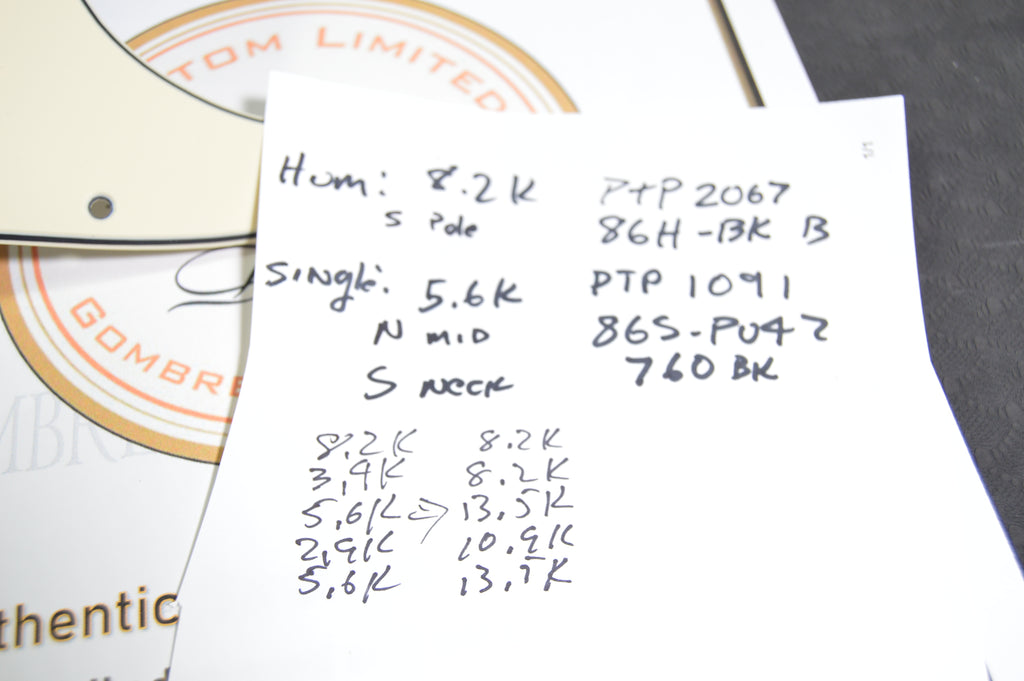 TOM LIMITED
1/1
Hum: 8.2K PTP 2067
S Pole 86H-BK B
Single: 5.6K PTP 1091
N MID 86S-PU42
S NECK 760 BK
GOMBRE
MBRE
8.2K 8.2K
3.9K 8.2K
5.6K => 13.5K
2.9K 10.9K
5.6K 13.7K
thentic